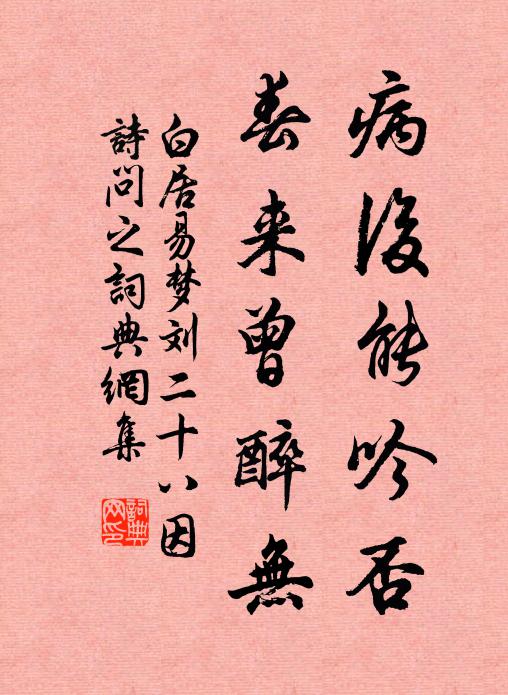 病後能吟否
春来曾醉無
白居易梦刘二十八因
詩问之詞典網集
詞典
网印